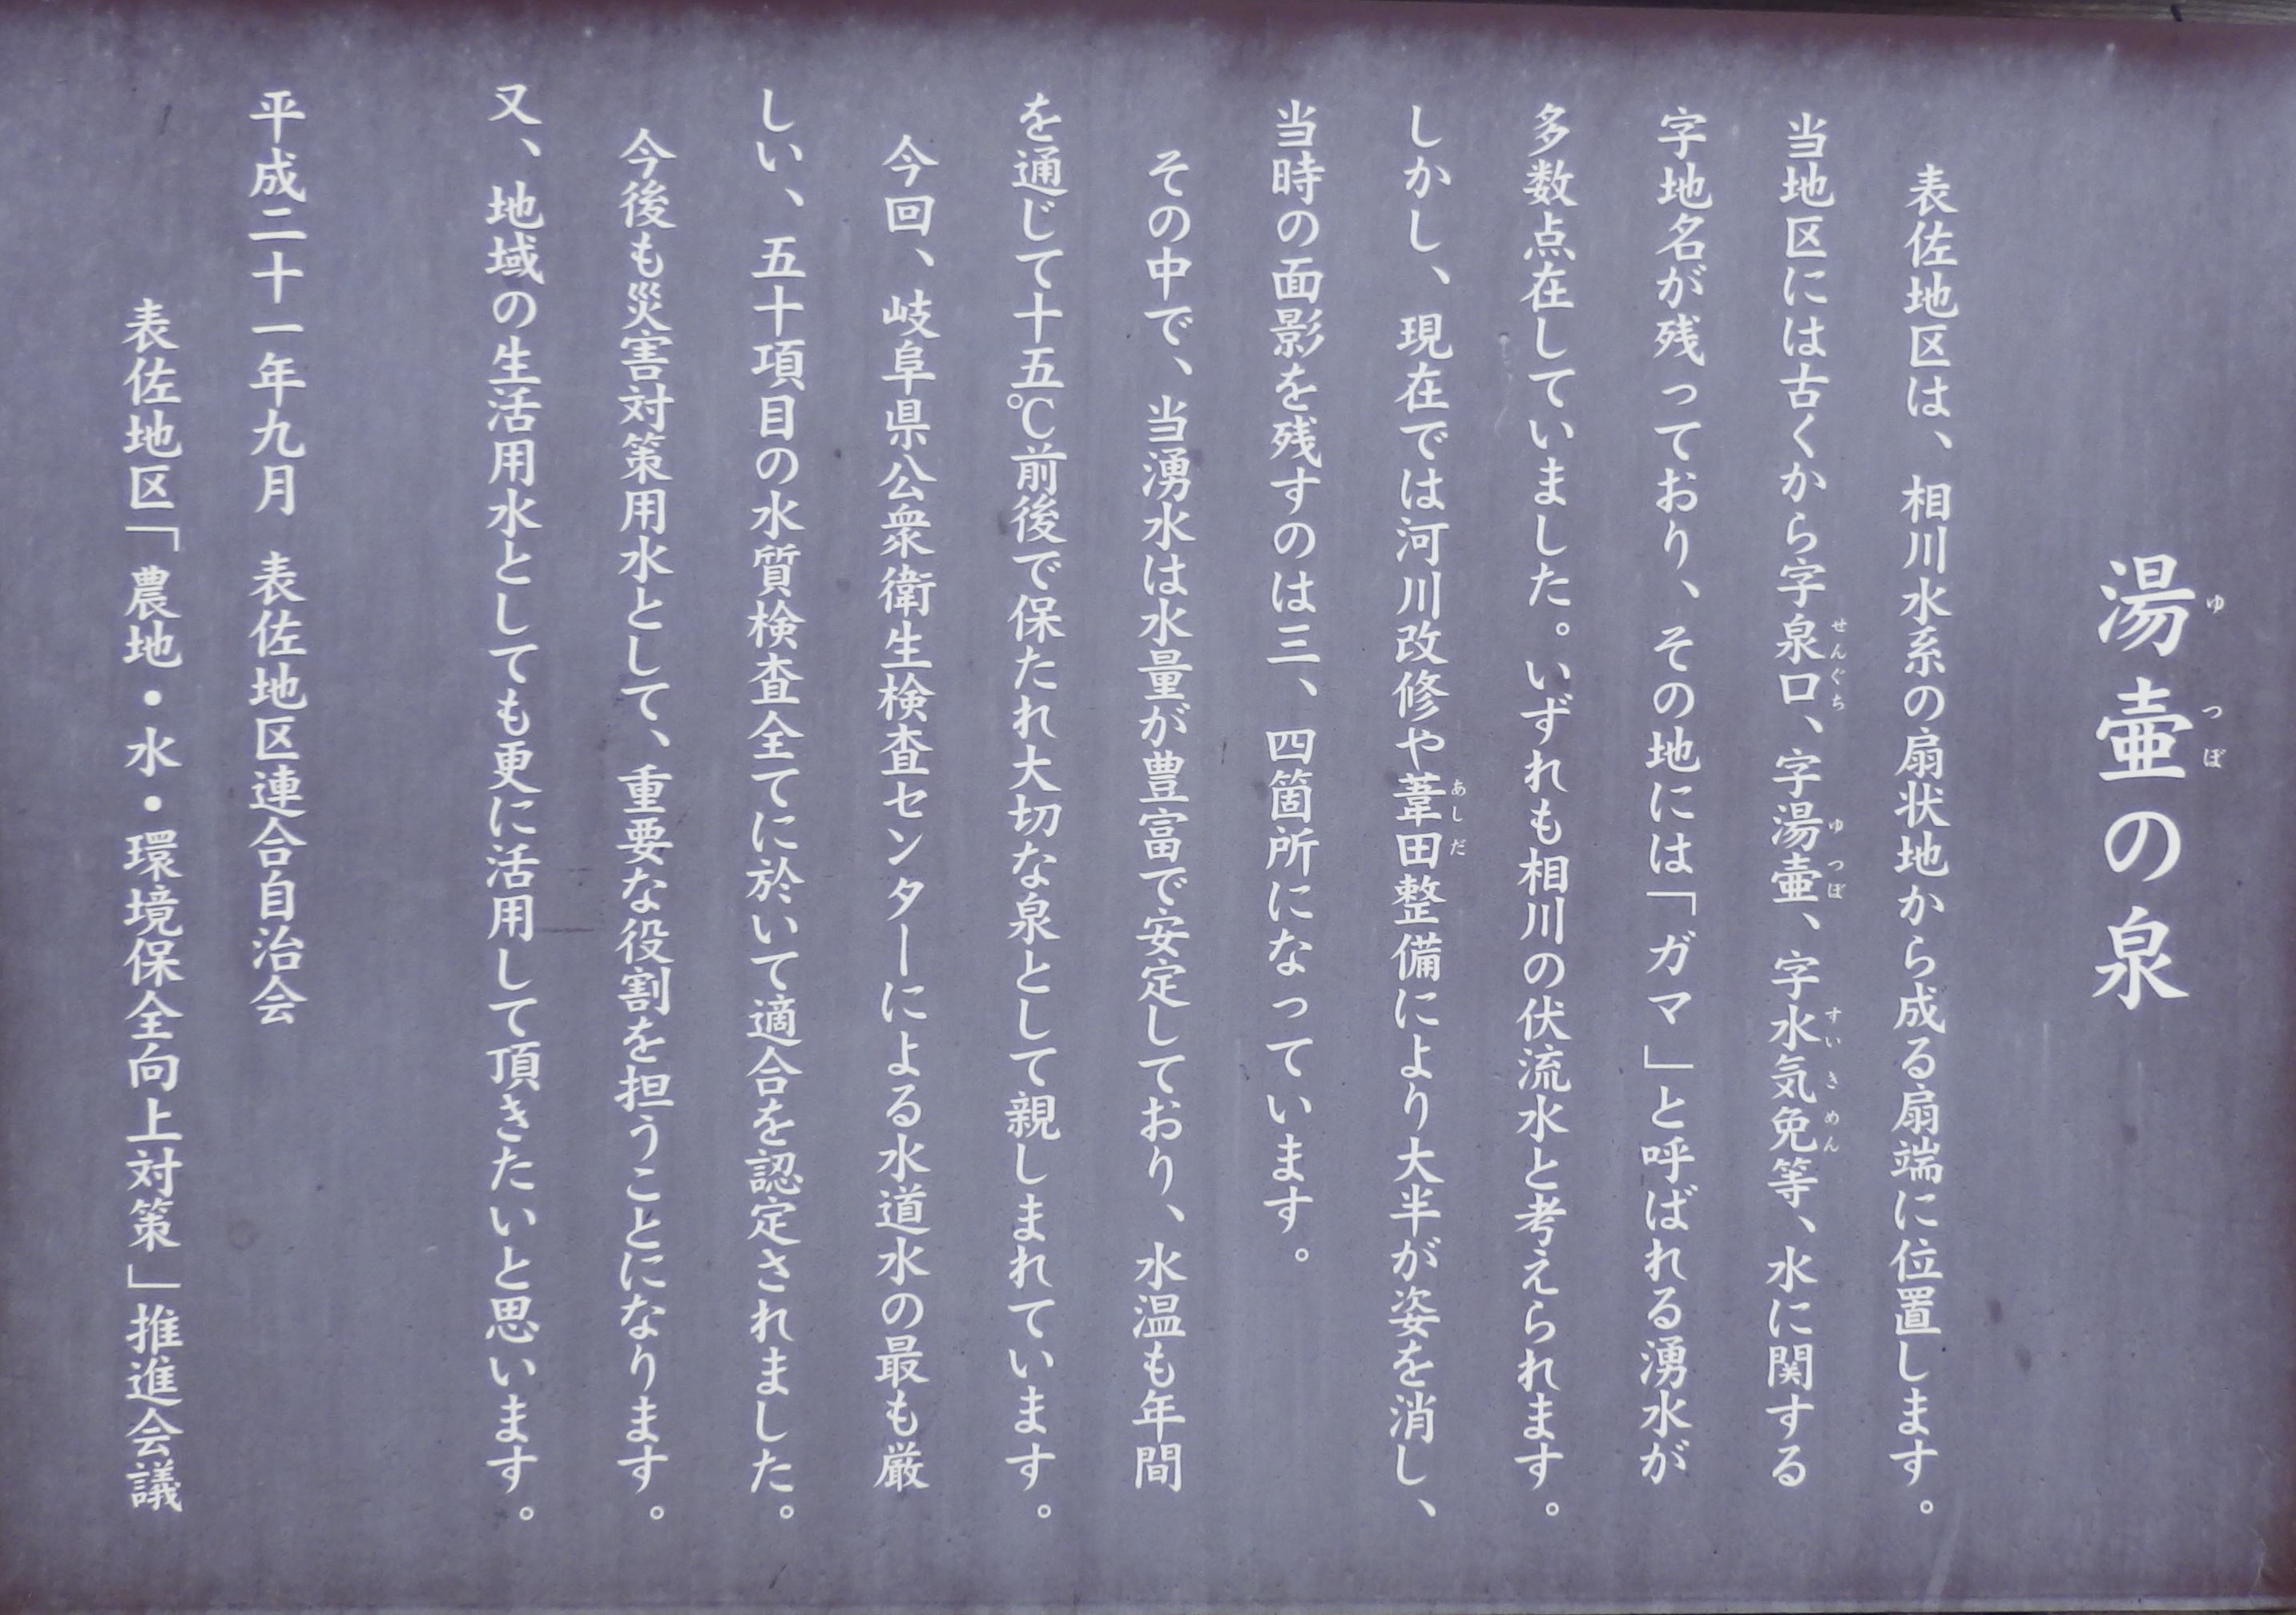 湯壷の泉
表佐地区は、相川水系の扇状地から成る扇端に位置します。
当地区には古くから字泉口、字湯壷、字水気免等、水に関する
字地名が残っており、その地には「ガマ」と呼ばれる湧水が
多数点在していました。いずれも相川の伏流水と考えられます。
しかし、現在では河川改修や葦田整備により大半が姿を消し、
当時の面影を残すのは三、四箇所になっています。
その中で、当湧水は水量が豊富で安定しており、水温も年間
を通じて十五℃前後で保たれ大切な泉として親しまれています。
今回、岐阜県公衆衛生検査センターによる水道水の最も厳
しい、五十項目の水質検査全てに於いて適合を認定されました。
今後も災害対策用水として、重要な役割を担うことになります。
又、地域の生活用水としても更に活用して頂きたいと思います。
平成二十一年九月　表佐地区連合自治会
表佐地区「農地・水・環境保全向上対策」推進会議
ゆ
つぼ
せんぐち
ゆつぼ
すいきめん
あしだ